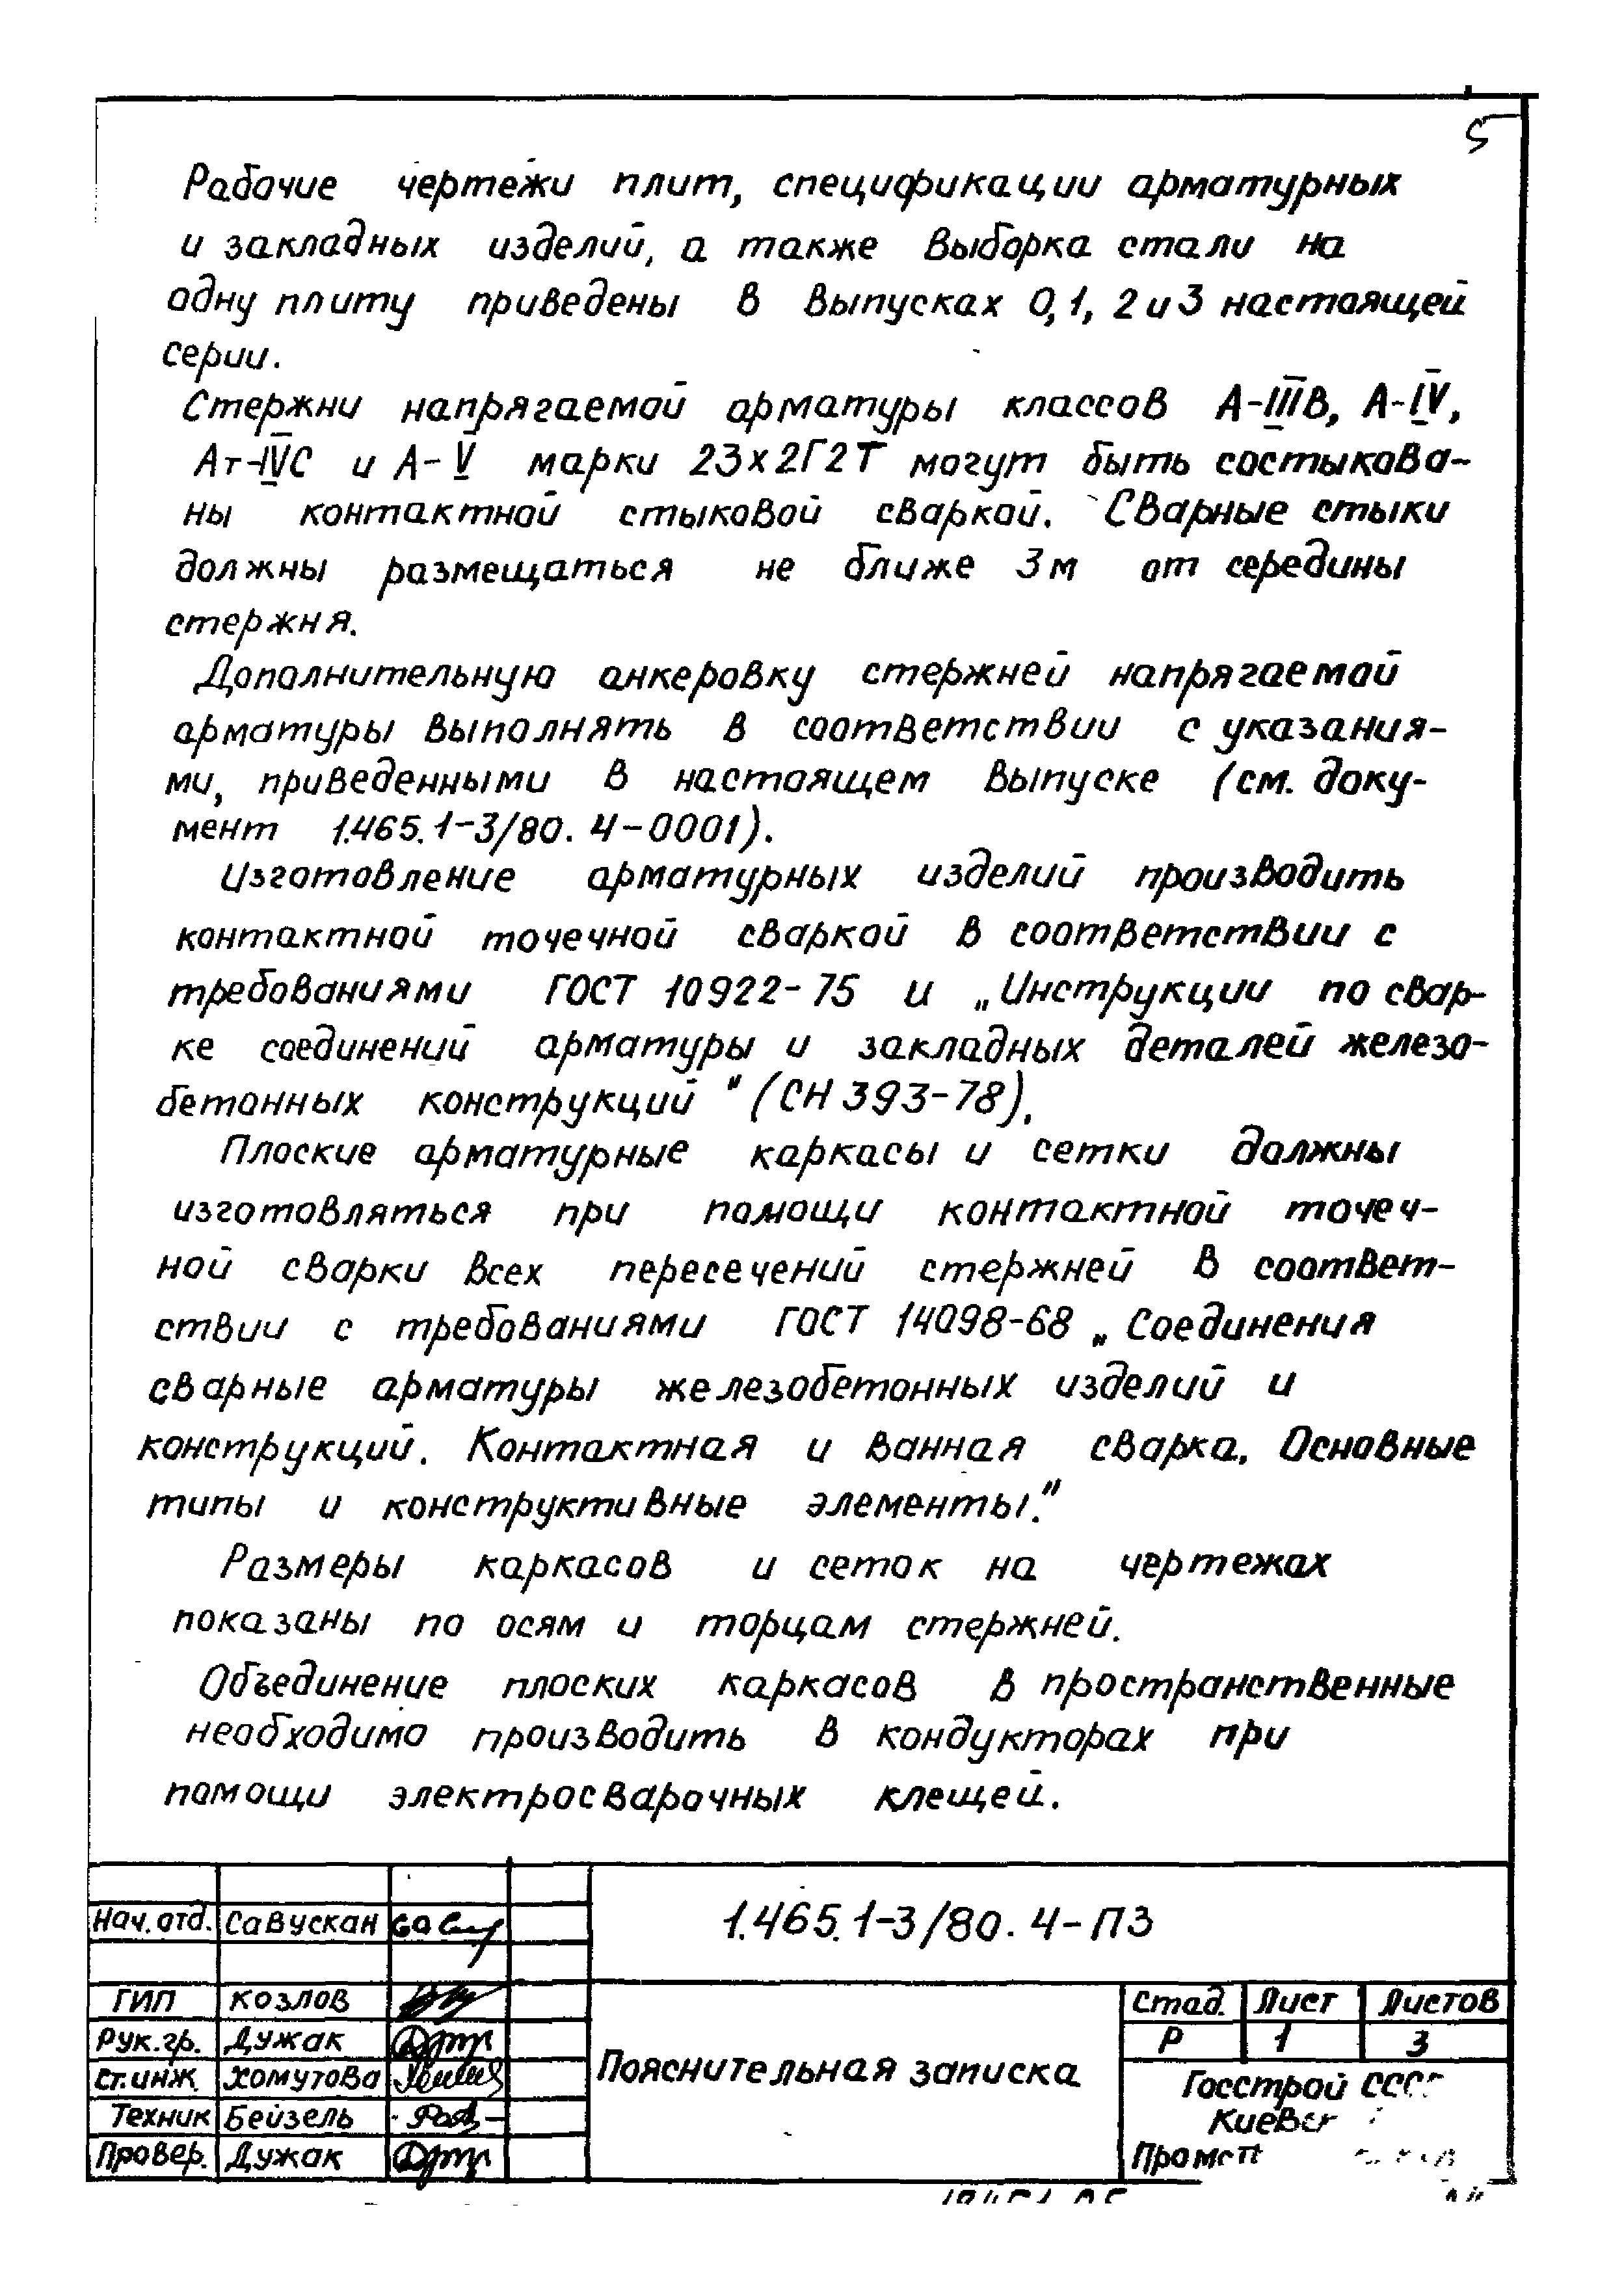 5
Рабочие чертежи плит, спецификации арматурных
и закладных изделий, а также выборка стали на
одну плиту приведены в выпусках 0, 1, 2 и 3 настоящей
серии.
Стержни напрягаемой арматуры классов А-IIIВ, А-IV,
Ат-IVС и А-V марки 23х2Г2Т могут быть состыкова-
ны контактной стыковой сваркой. Сварные стыки
должны размещаться не ближе 3м от середины
стержня.
Дополнительную анкеровку стержней напрягаемой
арматуры выполнять в соответствии с указания-
ми, приведенными в настоящем выпуске (см. доку-
мент 1.465.1-3/80.4-0001).
Изготовление арматурных изделий производить
контактной точечной сваркой в соответствии с
требованиями ГОСТ 10922-75 и „Инструкции по свар-
ке соединений арматуры и закладных деталей железо-
бетонных конструкций" (СН 393-78).
Плоские арматурные каркасы и сетки должны
изготовляться при помощи контактной точеч-
ной сварки всех пересечений стержней в соответ-
ствии с требованиями ГОСТ 14098-68 „Соединения
сварные арматуры железобетонных изделий и
конструкций. Контактная и ванная сварка. Основные
типы и конструктивные элементы."
Размеры каркасов и сеток на чертежах
показаны по осям и торцам стержней.
Объединение плоских каркасов в пространственные
необходимо производить в кондукторах при
помощи электросварочных клещей.
Нач. отд. Савускан
1.465.1-3/80.4-ПЗ
ГИП Козлов
Рук. гр. Дужак
Ст. инж. Хомутова
Техник Бейзель
Провер. Дужак
Пояснительная записка
Стад. Лист Листов
Р 1 3
Госстрой СССР